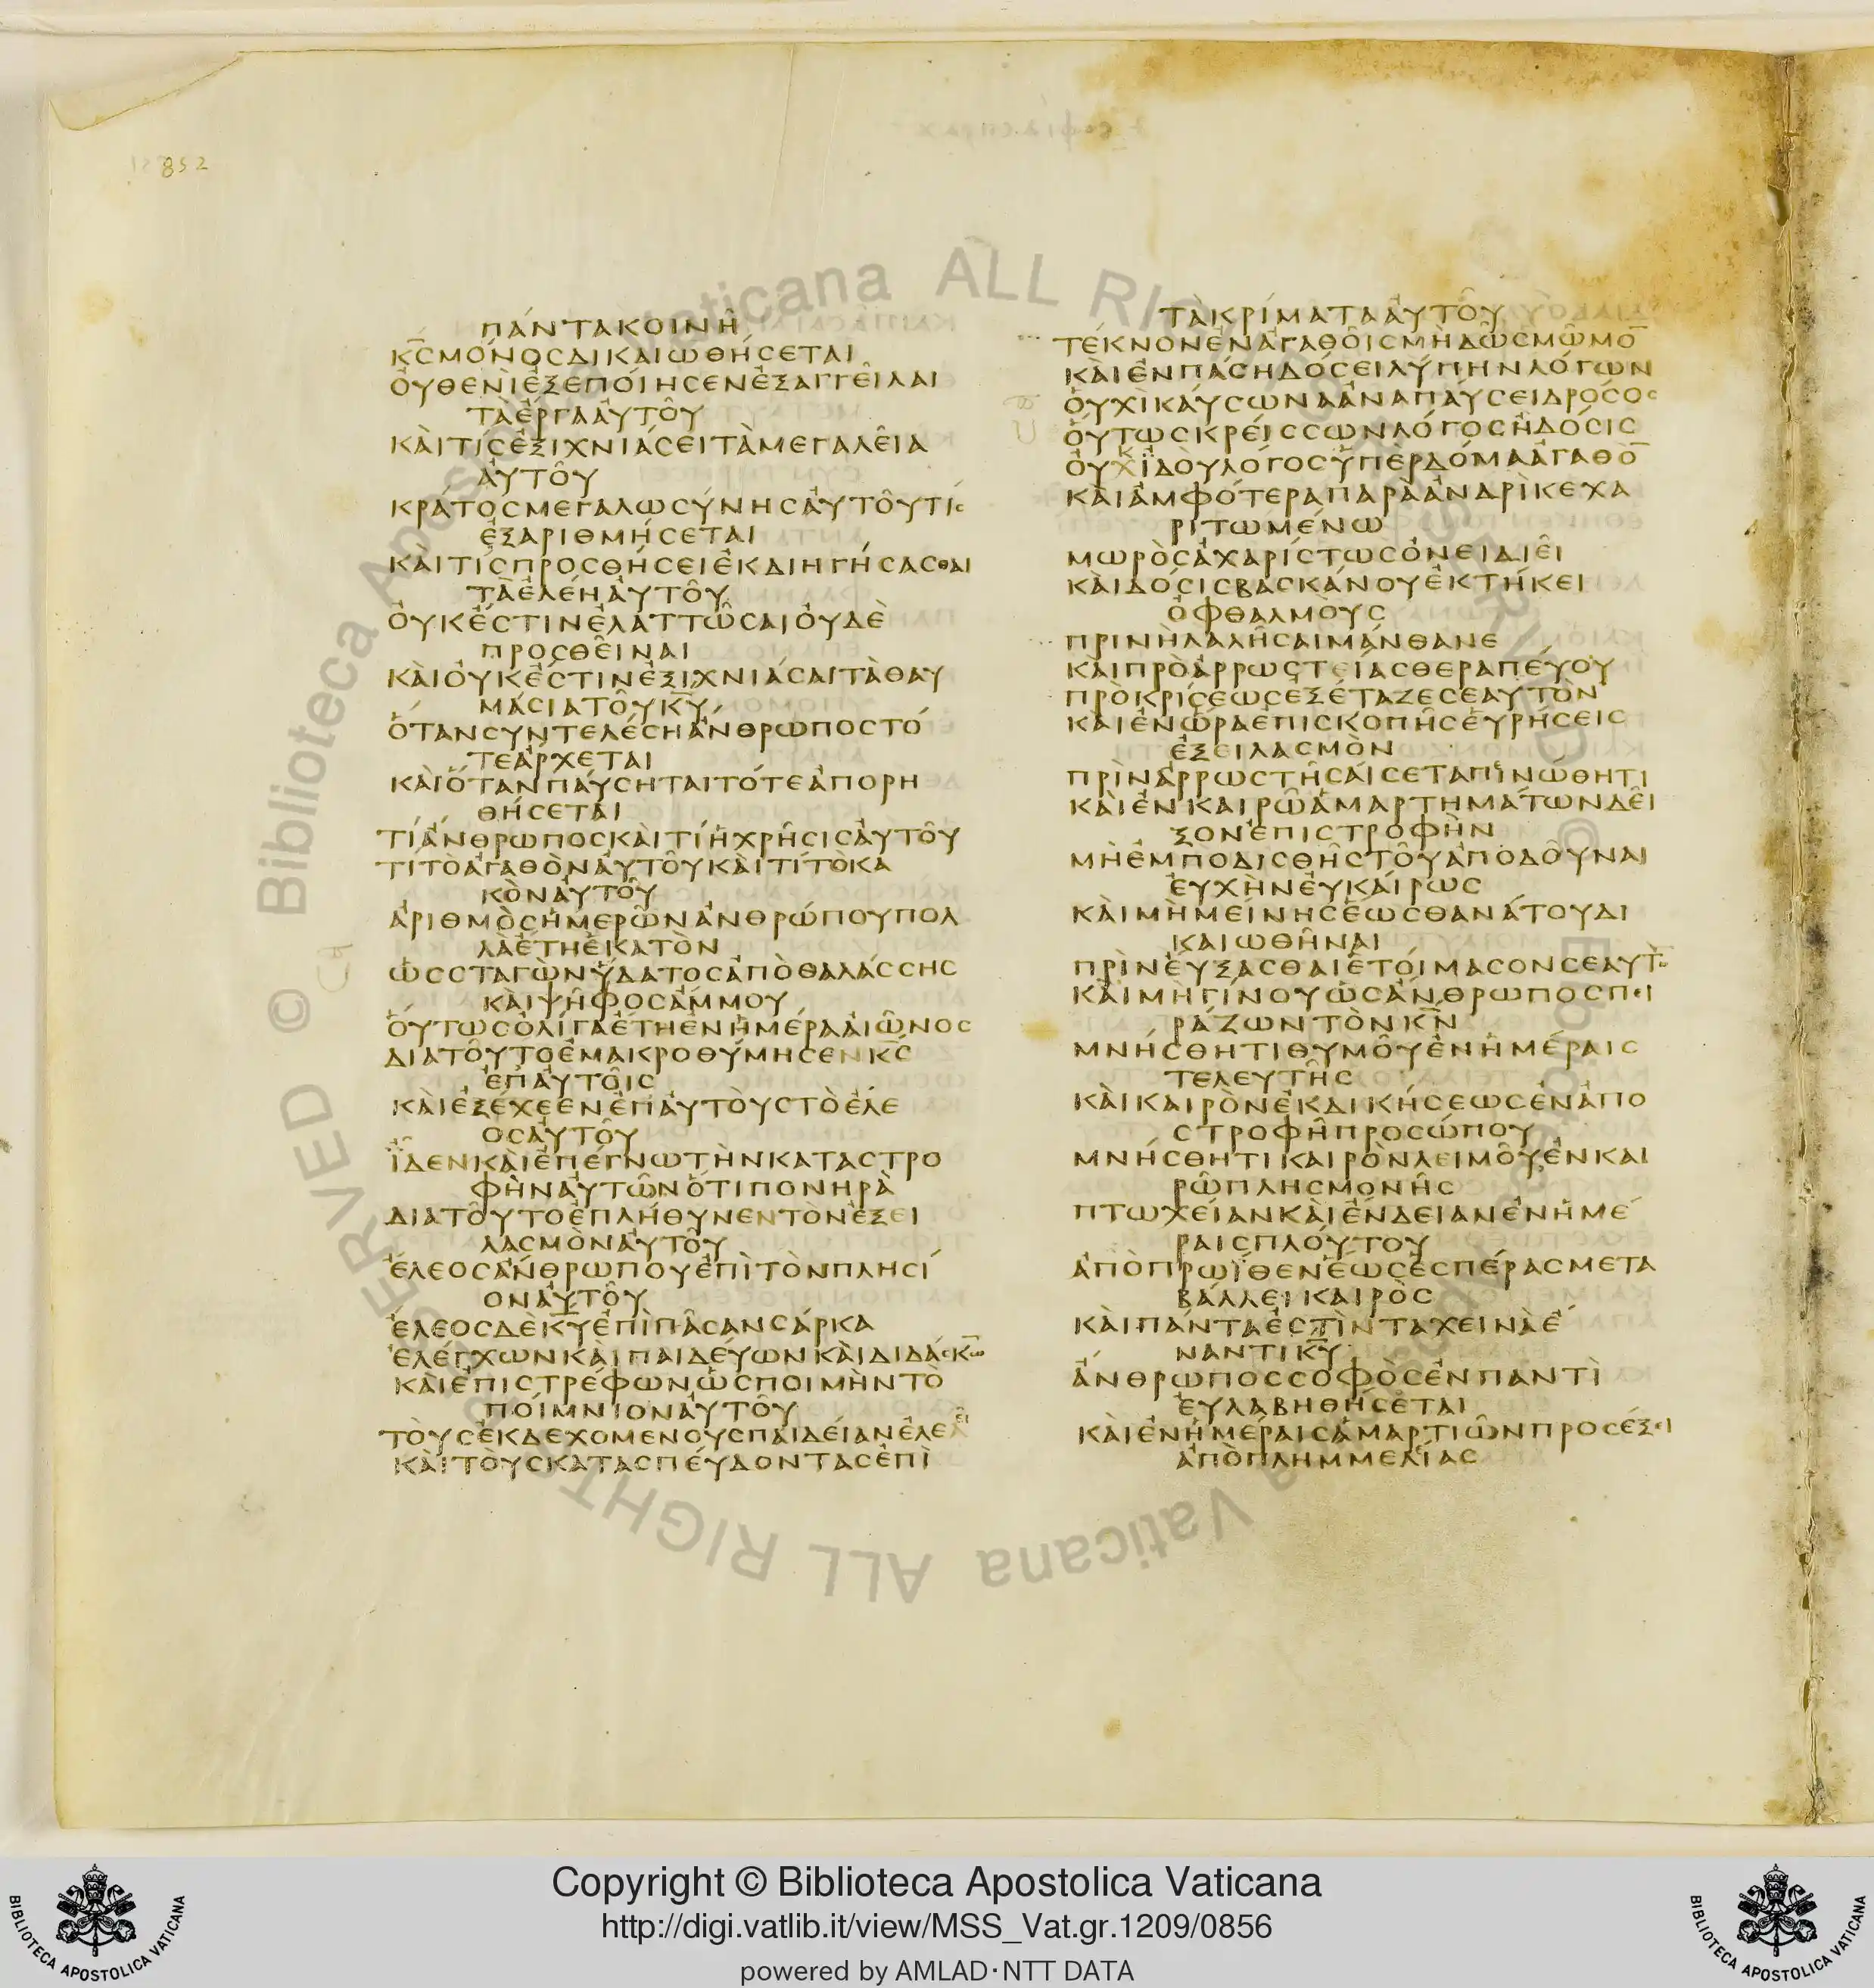 852
ΠΆΝΤΑΚΟΙΝΗ͂
Κ̅Ϲ̅ΜΌΝΟϹΔΙΚΑΙΩΘΉϹΕΤΑΙ
ΟΥ̓ΘΕΝῚἘΞΕΠΟΊΗϹΕΝἘΞΑΓΓΕΙ͂ΛΑΙ
ΤᾺἜΡΓΑΑΥ̓ΤΟΥ͂
ΚΑῚΤΊϹἘΞΙΧΝΙΆϹΕΙΤᾺΜΕΓΑΛΕΙ͂Α
ΑΥ̓ΤΟΥ͂
ΚΡΆΤΟϹΜΕΓΑΛΩϹΎΝΗϹΑΥ̓ΤΟΥ͂ΤΊϹ
ἘΞΑΡΙΘΜΉϹΕΤΑΙ
ΚΑῚΤΊϹΠΡΟϹΘΉϹΕΙἘΚΔΙΗΓΉϹΑϹΘΑΙ
ΤᾺἘΛΈΗΑΥ̓ΤΟΥ͂
ΟΥ̓ΚἜϹΤΙΝἘΛΑΤΤΩ͂ϹΑΙΟΥ̓ΔῈ
ΠΡΟϹΘΕΙ͂ΝΑΙ
ΚΑῚΟΥ̓ΚἜϹΤΙΝἘΞΙΧΝΙΆϹΑΙΤᾺΘΑΥ
ΜΆϹΙΑΤΟΥ͂Κ̅Υ̅
ὍΤΑΝϹΥΝΤΕΛΈϹΗἌΝΘΡΩΠΟϹΤΌ
ΤΕἌΡΧΕΤΑΙ
ΚΑῚὍΤΑΝΠΑΎϹΗΤΑΙΤΌΤΕἈΠΟΡΗ
ΘΉϹΕΤΑΙ
ΤΊἌΝΘΡΩΠΟϹΚΑῚΤΊἩΧΡΗ͂ϹΙϹΑΥ̓ΤΟΥ͂
ΤΊΤΟἈΓΑΘῸΝΑΥ̓ΤΟΥ͂ΚΑῚΤΊΤῸΚΑ
ΚῸΝΑΥ̓ΤΟΥ͂
ἈΡΙΘΜῸϹἩΜΕΡΩ͂ΝἈΝΘΡΏΠΟΥΠΟΛ
ΛᾺἜΤΗἙΚΑΤῸΝ
ὩϹϹΤΑΓῺΝὝΔΑΤΟϹἈΠῸΘΑΛΆϹϹΗϹ
ΚΑῚΨΗ͂ΦΟϹἌΜΜΟΥ
ΟὝΤΩϹὈΛΊΓΑἜΤΗἘΝἩΜΈΡΑΑἸΩ͂ΝΟϹ
ΔΙΑΤΟΥ͂ΤΟἘΜΑΚΡΟΘΎΜΗϹΕΝΚ̅Ϲ̅
ἘΠΑΥ̓ΤΟΙ͂Ϲ
ΚΑῚἘΞΈΧΕΕΝἘΠΑΥ̓ΤΟῪϹΤῸἜΛΕ
ΟϹΑΥ̓ΤΟΥ͂
ΪΔΕΝΚΑῚἘΠΈΓΝΩΤῊΝΚΑΤΑϹΤΡΟ
ΦῊΝΑΥ̓ΤΩ͂ΝὍΤΙΠΟΝΗΡᾺ
ΔΙΑΤΟΥ͂ΤΟἘΠΛΉΘΥΝΕΝΤῸΝἘΞΕΙ
ΛΑϹΜῸΝΑΥ̓ΤΟΥ͂
ἜΛΕΟϹἈΝΘΡΩΠΟΥἘΠῚΤῸΝΠΛΗϹΊ
ΟΝΑΥ̓ΤΟΥ͂
ἜΛΕΟϹΔῈΚ̅Υ̅ἘΠῚΠΑ͂ϹΑΝϹΆΡΚΑ
ἘΛΈΓΧΩΝΚΑῚΠΑΙΔΕΎΩΝΚΑῚΔΙΔΆϹΚΩ̅
ΚΑῚἘΠΙϹΤΡΈΦΩΝὩϹΠΟΙΜῊΝΤῸ
ΠΟΊΜΝΙΟΝΑΥ̓ΤΟΥ͂
ΤΟῪϹἘΚΔΕΧΟΜΕΝΟΥϹΠΑΙΔΕΊΑΝἘΛΕΕΙ͂
ΚΑῚΤΟῪϹΚΑΤΑϹΠΕΎΔΟΝΤΑϹἘΠῚ
ΤᾺΚΡΊΜΑΤΑΑΥ̓ΤΟΥ͂
ΤΈΚΝΟΝἘΝἈΓΑΘΟΙ͂ϹΜῊΔΩ͂ϹΜΩ͂ΜΟ̅
ΚΑῚἘΝΠΆϹΗΔΌϹΕΙΛΎΠΗΝΛΌΓΩΝ
ΟΥ̓ΧῚΚΑΎϹΩΝΑἈΝΑΠΑΎϹΕΙΔΡΌϹΟϹ
ΟὝΤΩϹΚΡΕΊϹϹΩΝΛΌΓΟϹἪΔΌϹΙϹ
ΟΥ̓ΚΧΪΔΟῪΛΌΓΟϹὙΠῈΡΔΌΜΑἈΓΑΘΟ̅
ΚΑῚἈΜΦΌΤΕΡΑΠΑΡᾺἈΝΔΡῚΚΕΧΑ
ΡΙΤΩΜΈΝΩ
ΜΩΡῸϹἈΧΑΡΊϹΤΩϹὈΝΕΙΔΙΕΙ͂
ΚΑῚΔΌϹΙϹΒΑϹΚΆΝΟΥἘΚΤΉΚΕΙ
ὈΦΘΑΛΜΟῪϹ
ΠΡΙΝῊΛΑΛΗ͂ϹΑΙΜΆΝΘΑΝΕ
ΚΑΙΠΡῸἈΡΡΩϹΤΕΊΑϹΘΕΡΑΠΕΎΟΥ
ΠΡῸΚΡΊϹΕΩϹΕΞΈΤΑΖΕϹΕΑΥΤῸΝ
ΚΑΙἘΝὭΡΑἘΠΙϹΚΟΠΗ͂ϹΕὙΡΉϹΕΙϹ
ἘΞΕΙΛΑϹΜῸΝ
ΠΡῚΝἈΡΡΩϹΤΗ͂ϹΑΊϹΕΤΑΠΙΝΏΘΗΤΙ
ΚΑῚἘΝΚΑΙΡΩ͂ἉΜΑΡΤΗΜΆΤΩΝΔΕΙ͂
ΞΟΝἘΠΙϹΤΡΟΦῊΝ
ΜῊἘΜΠΟΔΙϹΘΗ͂ϹΤΟΥ͂ἈΠΟΔΟΥ͂ΝΑΙ
ΕΥ̓ΧῊΝΕΥ̓ΚΑΊΡΩϹ
ΚΑῚΜῊΜΕΊΝΗϹἝΩϹΘΑΝΆΤΟΥΔΙ
ΚΑΙΩΘΗ͂ΝΑΙ
ΠΡῚΝΕΎΞΑϹΘΑΙἙΤΟΊΜΑϹΟΝϹΕΑΥΤῸ̅
ΚΑῚΜῊΓΊΝΟΥὩϹἌΝΘΡΩΠΟϹΠΕΙ
ΡΆΖΩΝΤῸΝΚ̅Ν̅
ΜΝΉϹΘΗΤΙΘΥΜΟΥ͂ἘΝἩΜΈΡΑΙϹ
ΤΕΛΕΥΤΗ͂Ϲ
ΚΑῚΚΑΙΡῸΝἘΚΔΙΚΉϹΕΩϹἘΝἈΠΟ
ϹΤΡΟΦΗ͂ΠΡΟϹΏΠΟΥ
ΜΝΉϹΘΗΤΙΚΑΙΡῸΝΛΕΙΜΟΥ͂ἘΝΚΑΙ
ΡΩ͂ΠΛΗϹΜΟΝΗ͂Ϲ
ΠΤΩΧΕΊΑΝΚΑῚἜΝΔΕΙΑΝἘΝἩΜΈ
ΡΑΙϹΠΛΟΎΤΟΥ
ἈΠῸΠΡΩΪΘΕΝἝΩϹἙϹΠΈΡΑϹΜΕΤΑ
ΒΆΛΛΕΙΚΑΙΡῸϹ
ΚΑῚΠΆΝΤΑἘϹΤῚΝΤΑΧΕΙΝᾺἜ
ΝΑΝΤΙΚ̅Υ̅
ἌΝΘΡΩΠΟϹϹΟΦῸϹἘΝΠΑΝΤῚ
ΕΥ̓ΛΑΒΗΘΉϹΕΤΑΙ
ΚΑῚἘΝἩΜΈΡΑΙϹἉΜΑΡΤΙΩ͂ΝΠΡΟϹΈΞΕΙ
ἈΠῸΠΛΗΜΜΕΛΕΊΑϹ
Copyright © Biblioteca Apostolica Vaticana
http://digi.vatlib.it/view/MSS_Vat.gr.1209/0856
powered by AMLAD·NTT DATA
BIBLIOTECA APOSTOLICA VATICANA
BIBLIOTECA APOSTOLICA VATICANA